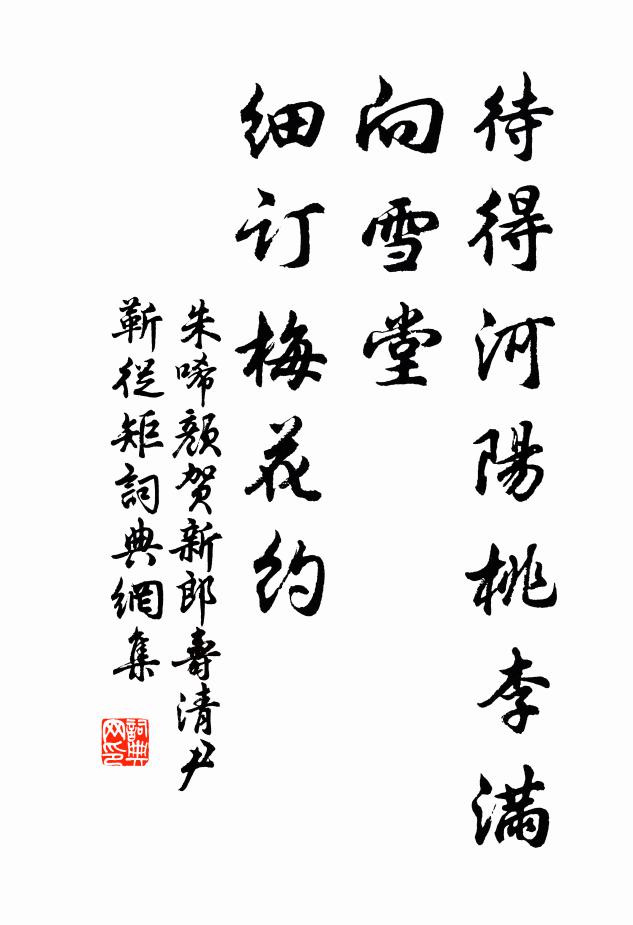 待得河陽桃李滿
向雪堂
细订梅花约
朱唏颜贺新郎壽清尹
靳從矩詞典網集
詞典网印